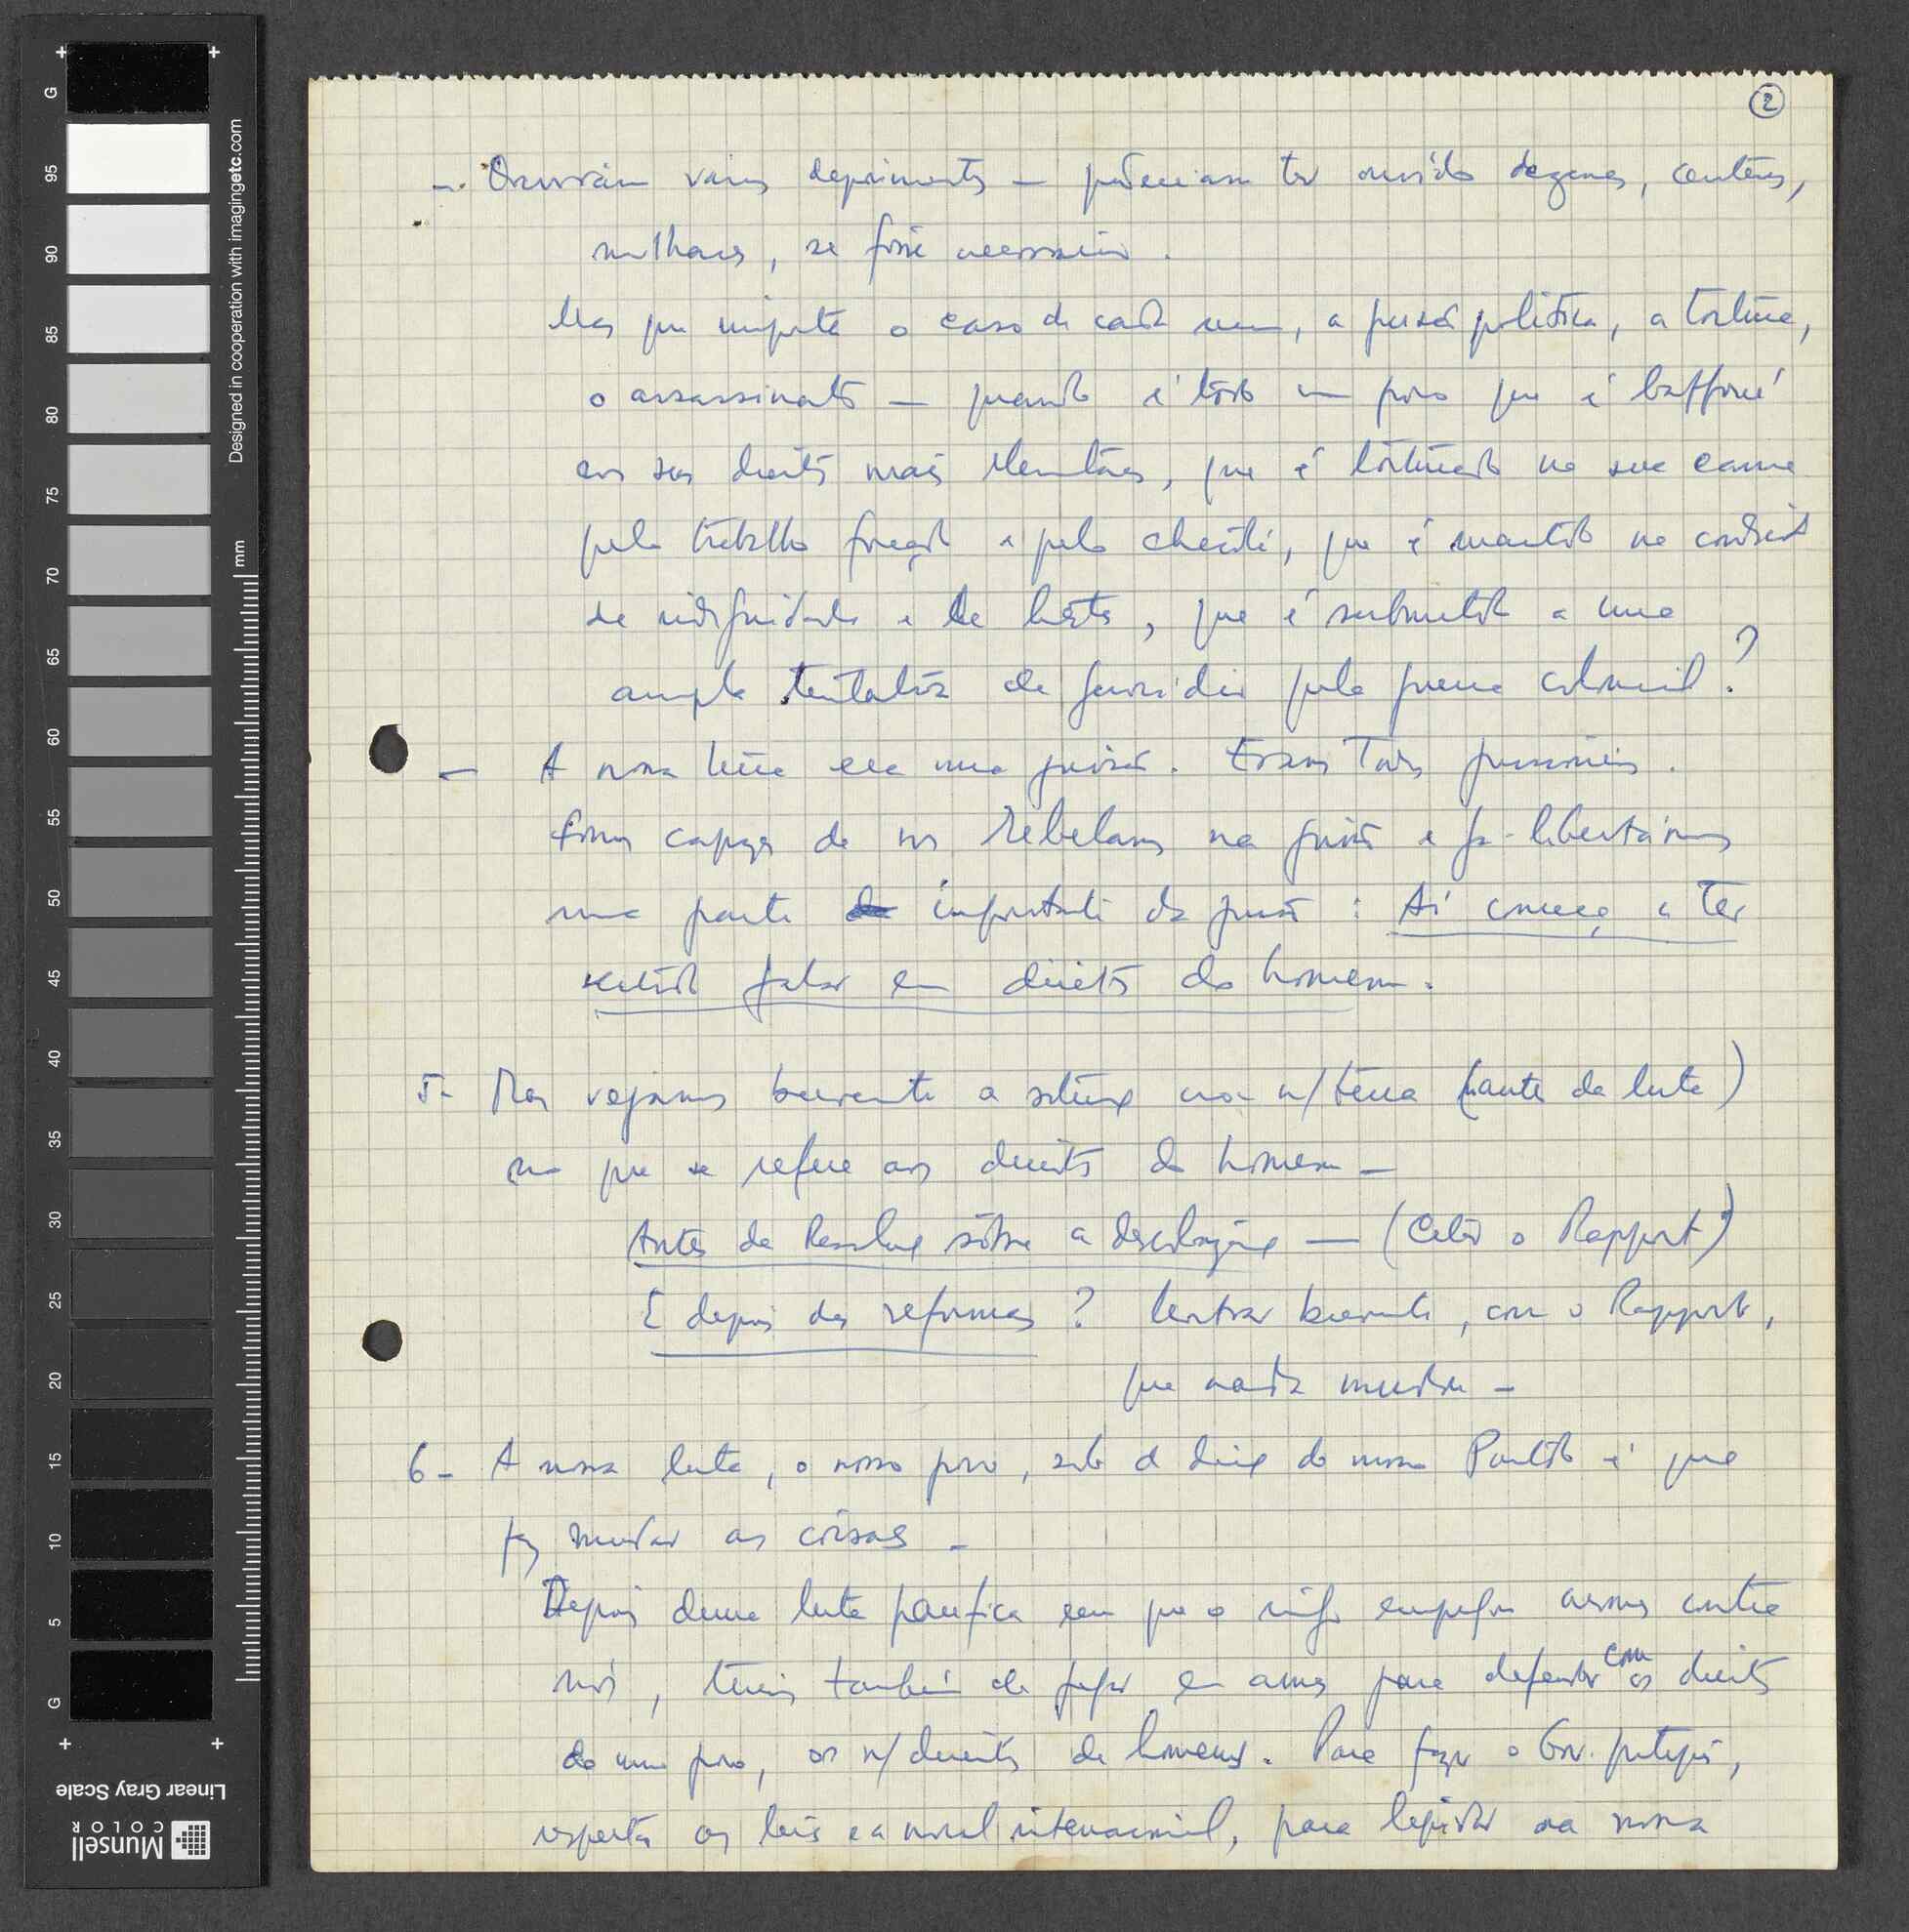 2
- Ouviram vários depoimentos — poderiam ter ouvido dezenas, centenas,
milhares, se fosse necessário.
Mas que importa o caso de cada um, a prisão política, a tortura,
o assassinato — quando é todo um povo que é baffoué
nos seus direitos mais elementares, que é torturado na sua carne
pelo trabalho forçado e pelo chicote, que é mantido na condição
de indignidade e de besta, que é submetido a uma
ampla tentativa de genocídio pela guerra colonial?
- A nossa terra era uma prisão. Éramos Todos prisioneiros.
Fomos capazes de nos rebelarmos na prisão e já libertámos
uma parte importante da prisão: Aí começa a Ter
sentido falar em direitos do homem.
5- Mas vejamos brevemente a situação na n/ terra (antes da luta)
no que se refere aos direitos do homem —
Antes da Resolução sôbre a descolonização — (Citar o Rapport)
E depois das reformas? Mostrar brevemente, com o Rapport,
que nada mudou -
6- A nossa luta, o nosso povo, sob a direção do nosso Partido é que
fez mudar as coisas -
Depois duma luta pacífica em que o inimigo empregou armas contra
nós, tivemos também de pegar em armas para defender com os direitos
do nosso povo, os n/ direitos de homens. Para fazer o Gov. português,
respeitar as leis e a moral internacional, para legislar na nossa
Designed in cooperation with imagingetc.com
mm
G
95
90
85
80
75
70
65
60
55
50
45
40
35
30
25
20
15
10
5
G
Linear Gray Scale
Munsell
COLOR